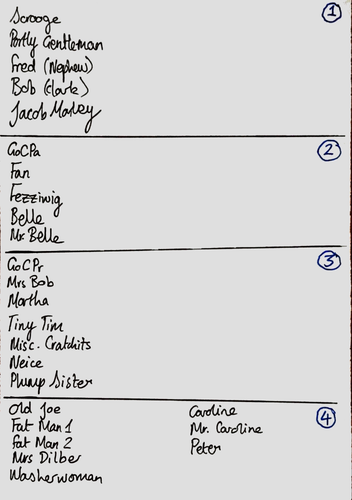 Scrooge
①
Portly Gentleman
Fred (Nephew)
Bob (Clark)
Jacob Marley
GoCPa
②
Fan
Fezziwig
Belle
Mr Belle
GoCPr
③
Mrs Bob
Martha
Tiny Tim
Misc. Cratchits
Neice
Plump Sister
Old Joe
Caroline
④
Fat Man 1
Mr. Caroline
Fat Man 2
Peter
Mrs Dilber
Washerwoman